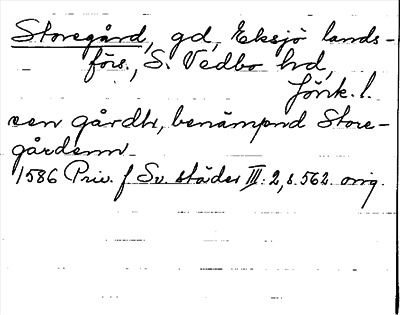 Storegård, gd, Eksjö lands-
förs., S. Vedbo hd,
Jönk. l.
een gårdh, benämpnd Store-
gårdenn
1586 Priv. f Sv. städer III: 2, s. 562. orig.